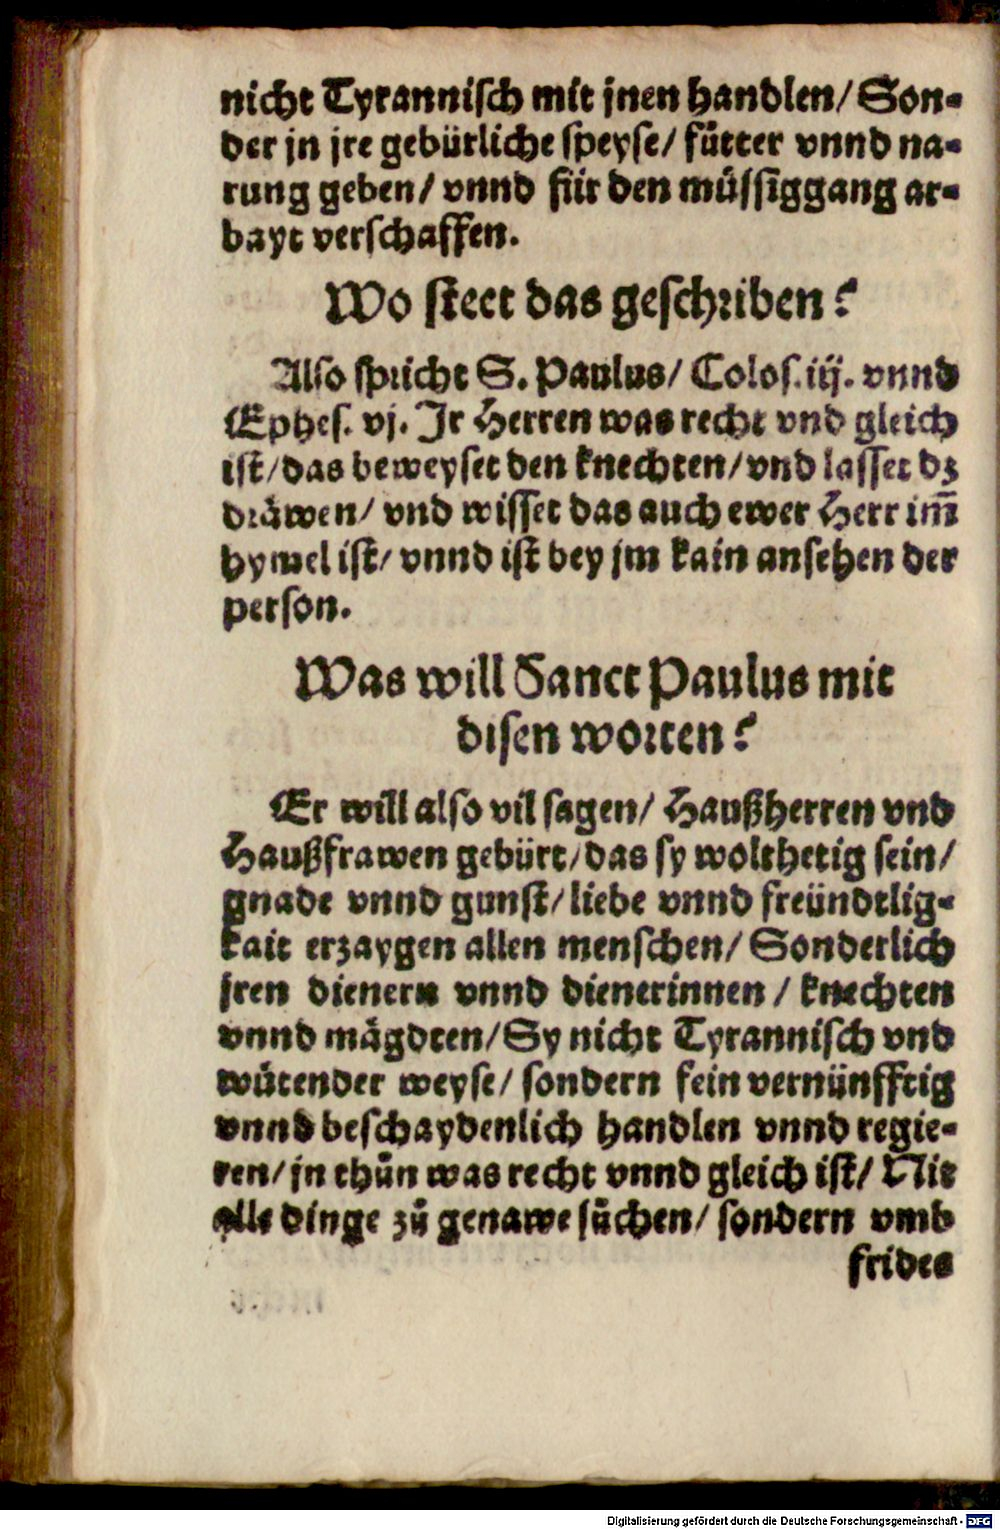 nicht Tyrannisch mit jnen handlen/ Son-
der jn jre gebürliche speyse/ fůtter vnnd na-
rung geben/ vnnd für den müssiggang ar-
bayt verschaffen.
Wo steet das geschriben?
Also spricht S. Paulus/ Colos. iij. vnnd
Ephes. vj. Jr Herren was recht vnd gleich
ist/ das beweyset den knechten/ vnd lasset dz
dräwen/ vnd wisset das auch ewer Herr im̄
hymel ist/ vnnd ist bey jm kain ansehen der
person.
Was will Sanct Paulus mit
disen worten?
Er will also vil sagen/ Haußherren vnd
Haußfrawen gebürt/ das sy wolthetig sein/
gnade vnnd gunst/ liebe vnnd freündtlig-
kait erzaygen allen menschen/ Sonderlich
jren dienern vnnd dienerinnen/ knechten
vnnd mägdten/ Sy nicht Tyrannisch vnd
wütender weyse/ sondern fein vernünfftig
vnnd beschaydenlich handlen vnnd regie-
ren/ jn thůn was recht vnnd gleich ist/ Nit
alle dinge zů genawe sůchen/ sondern vmb
frides
Digitalisierung gefördert durch die Deutsche Forschungsgemeinschaft - DFG